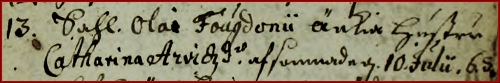 13. Sahl. Olai Fougdonii änkia Hustru
Catharina Arvidz Dr. afsomnade 10 Julii.